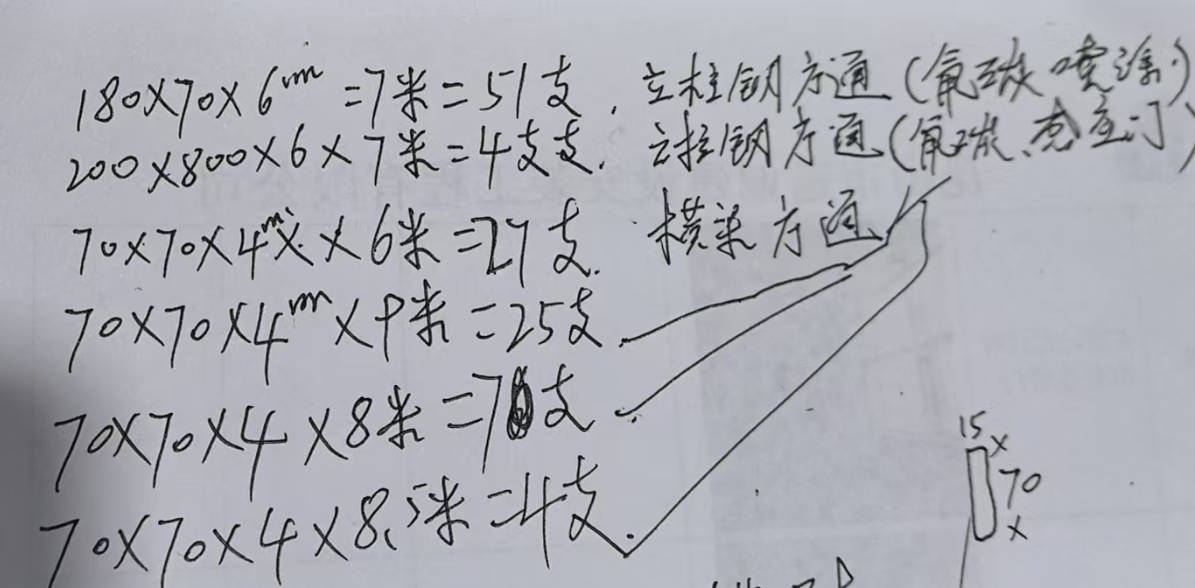 180×70×6mm=7米=51支. 立柱钢方通(氟碳喷涂)
200×800×6×7米=4支支. 立柱钢方通(氟碳
70×70×4m××6米=27支. 横梁方通
70×70×4mm×9米=25支.
70×70×4×8米=7支.
70×70×4×8.5米=4支.
15×
70
×